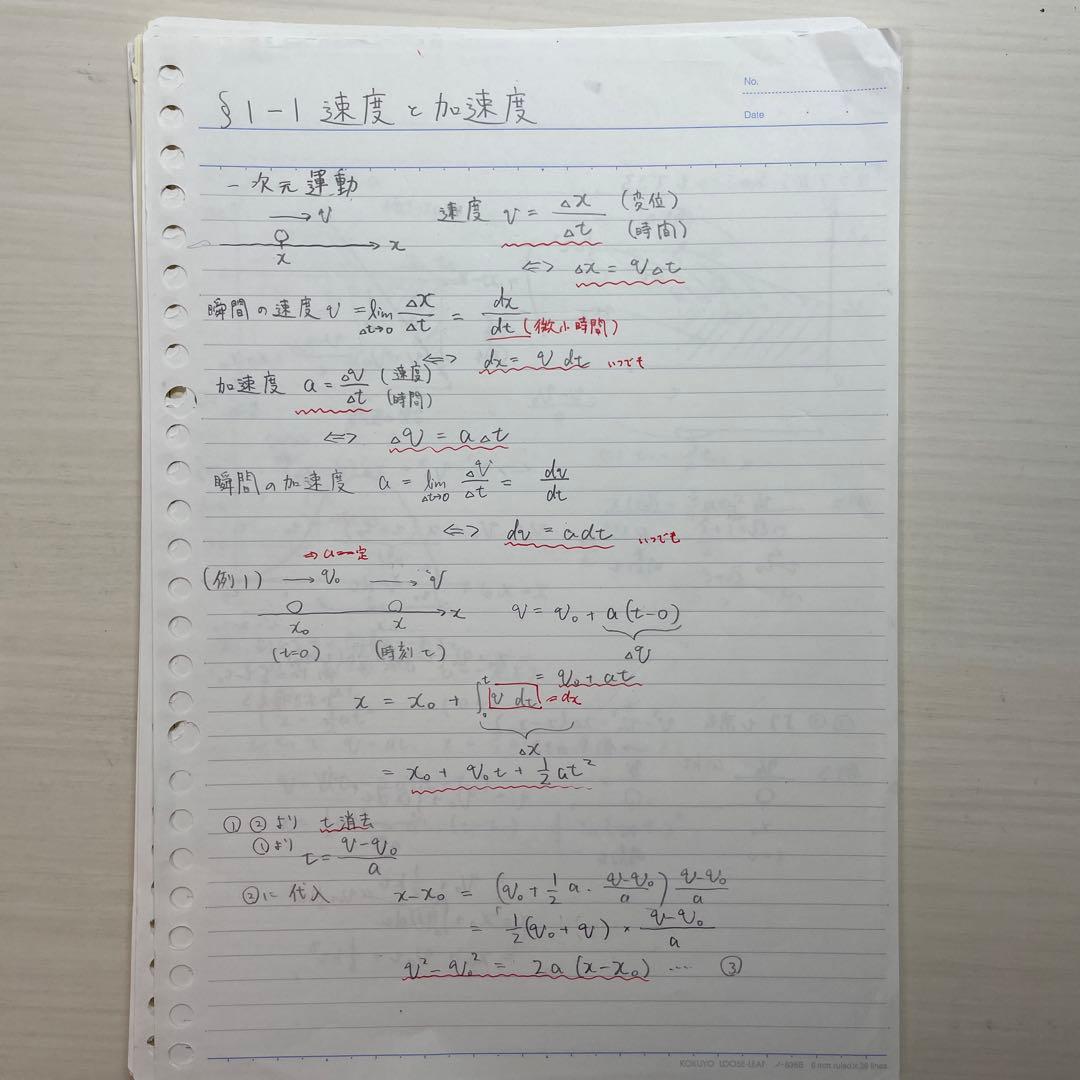 No.
§1-1 速度と加速度
Date
一次元運動
→v 速度 v = Δx/Δt (変位)/(時間)
x x
⇔ Δx = vΔt
瞬間の速度 v = lim Δt→0 Δx/Δt = dx/dt (微小時間)
⇔ dx = v dt いつでも
加速度 a = Δv/Δt (速度)/(時間)
⇔ Δv = aΔt
瞬間の加速度 a = lim Δt→0 Δv/Δt = dv/dt
⇔ dv = adt いつでも
⇒ a=一定
(例1) →v₀ →v
x₀ x x v = v₀ + a(t-0)
(t=0) (時刻t) Δv
= v₀ + at
x = x₀ + ∫₀ᵗ v dt = dx
Δx
= x₀ + v₀t + 1/2 at²
① ②より t消去
①より t = (v-v₀)/a
②に代入 x-x₀ = (v₀ + 1/2 a · (v-v₀)/a) (v-v₀)/a
= 1/2 (v₀ + v) × (v-v₀)/a
v² - v₀² = 2a(x-x₀) …… ③
KOKUYO LOOSE-LEAF ノ-836B 6 mm ruled × 36 lines